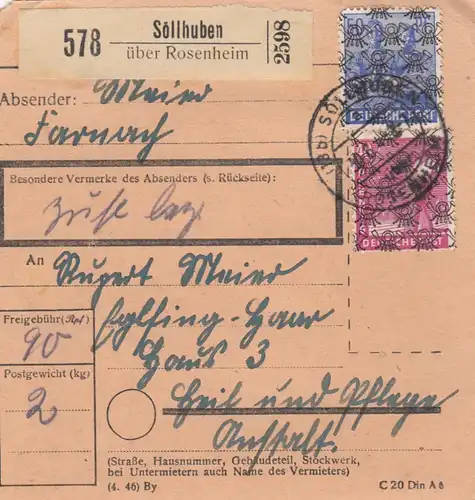 578
Söllhuben
über Rosenheim
2598
Absender: Meier
Farnach
Besondere Vermerke des Absenders (s. Rückseite):
An Rupert Meier
Eglfing-Haar
Haus 3
Heil und Pflege
Anstalt.
Freigebühr (Rpf)
90
Postgewicht (kg)
2
(Straße, Hausnummer, Gebäudeteil, Stockwerk,
bei Untermietern auch Name des Vermieters)
(4. 46) By
C 20 Din A 6
DEUTSCHE POST
DEUTSCHE POST
(13b) SÖLLHUBEN